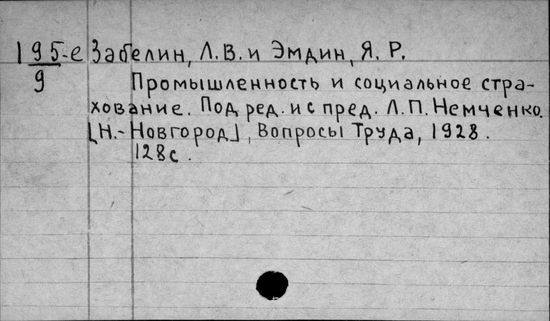 195-е Забелин, Л. В. и Эмдин, Я. Р.
9 Промышленность и социальное стра-
хование. Под ред. и с пред. Л. П. Немченко.
[Н.-Новгород], Вопросы Труда, 1928.
128с.